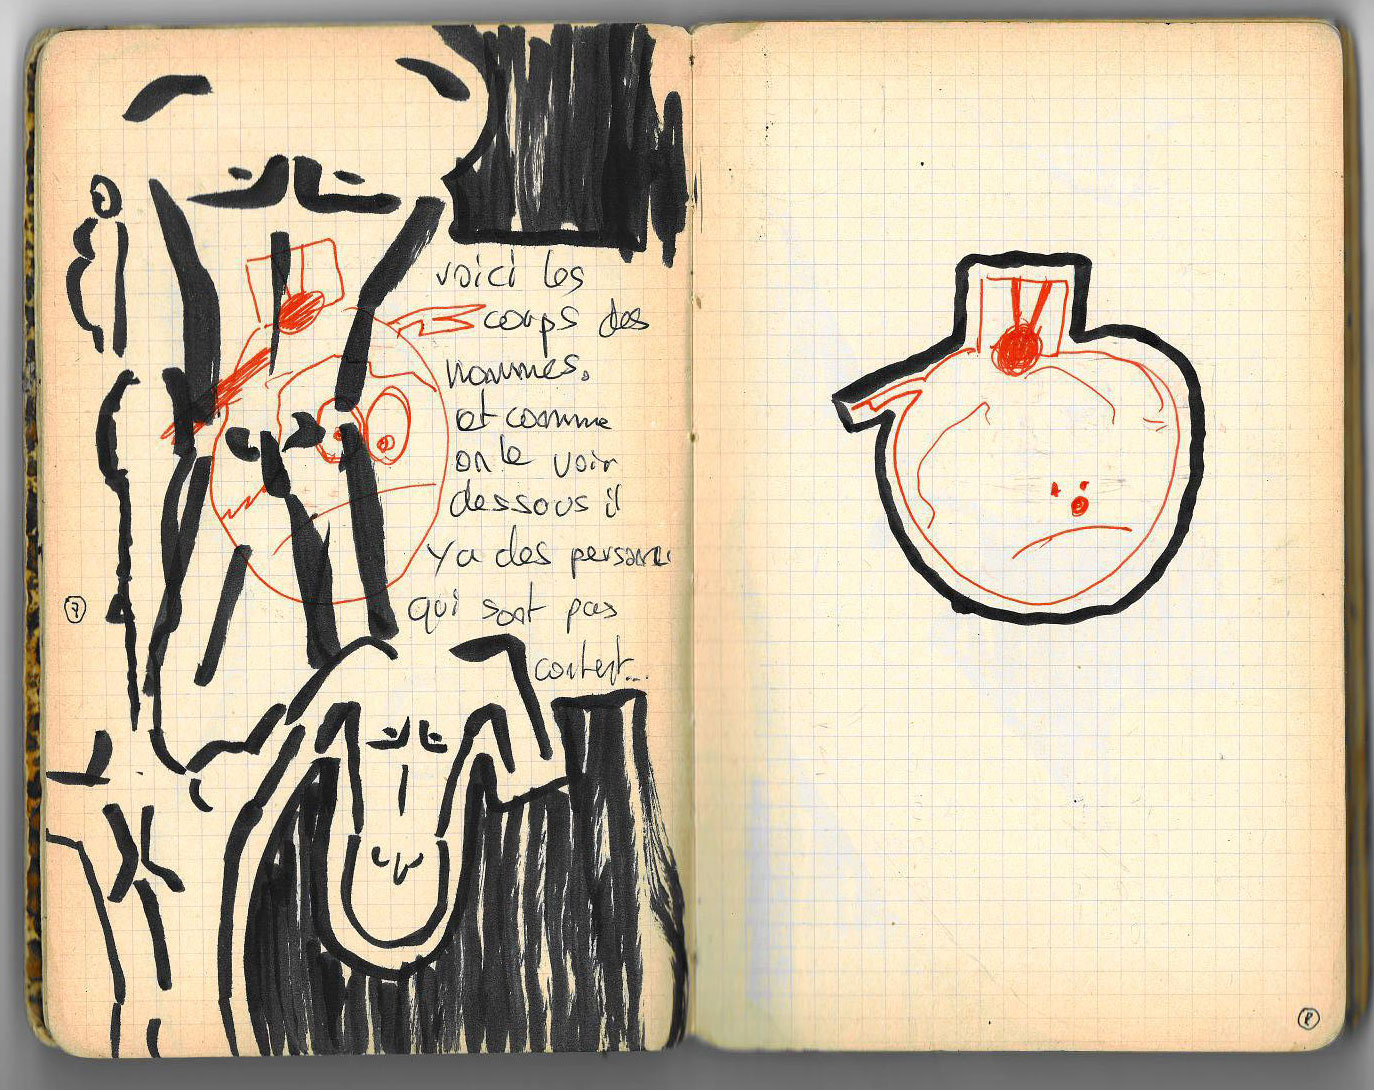 voici les
corps des
hommes.
et comme
on le voir
dessous il
y a des personne
qui sont pas
content...
7
8